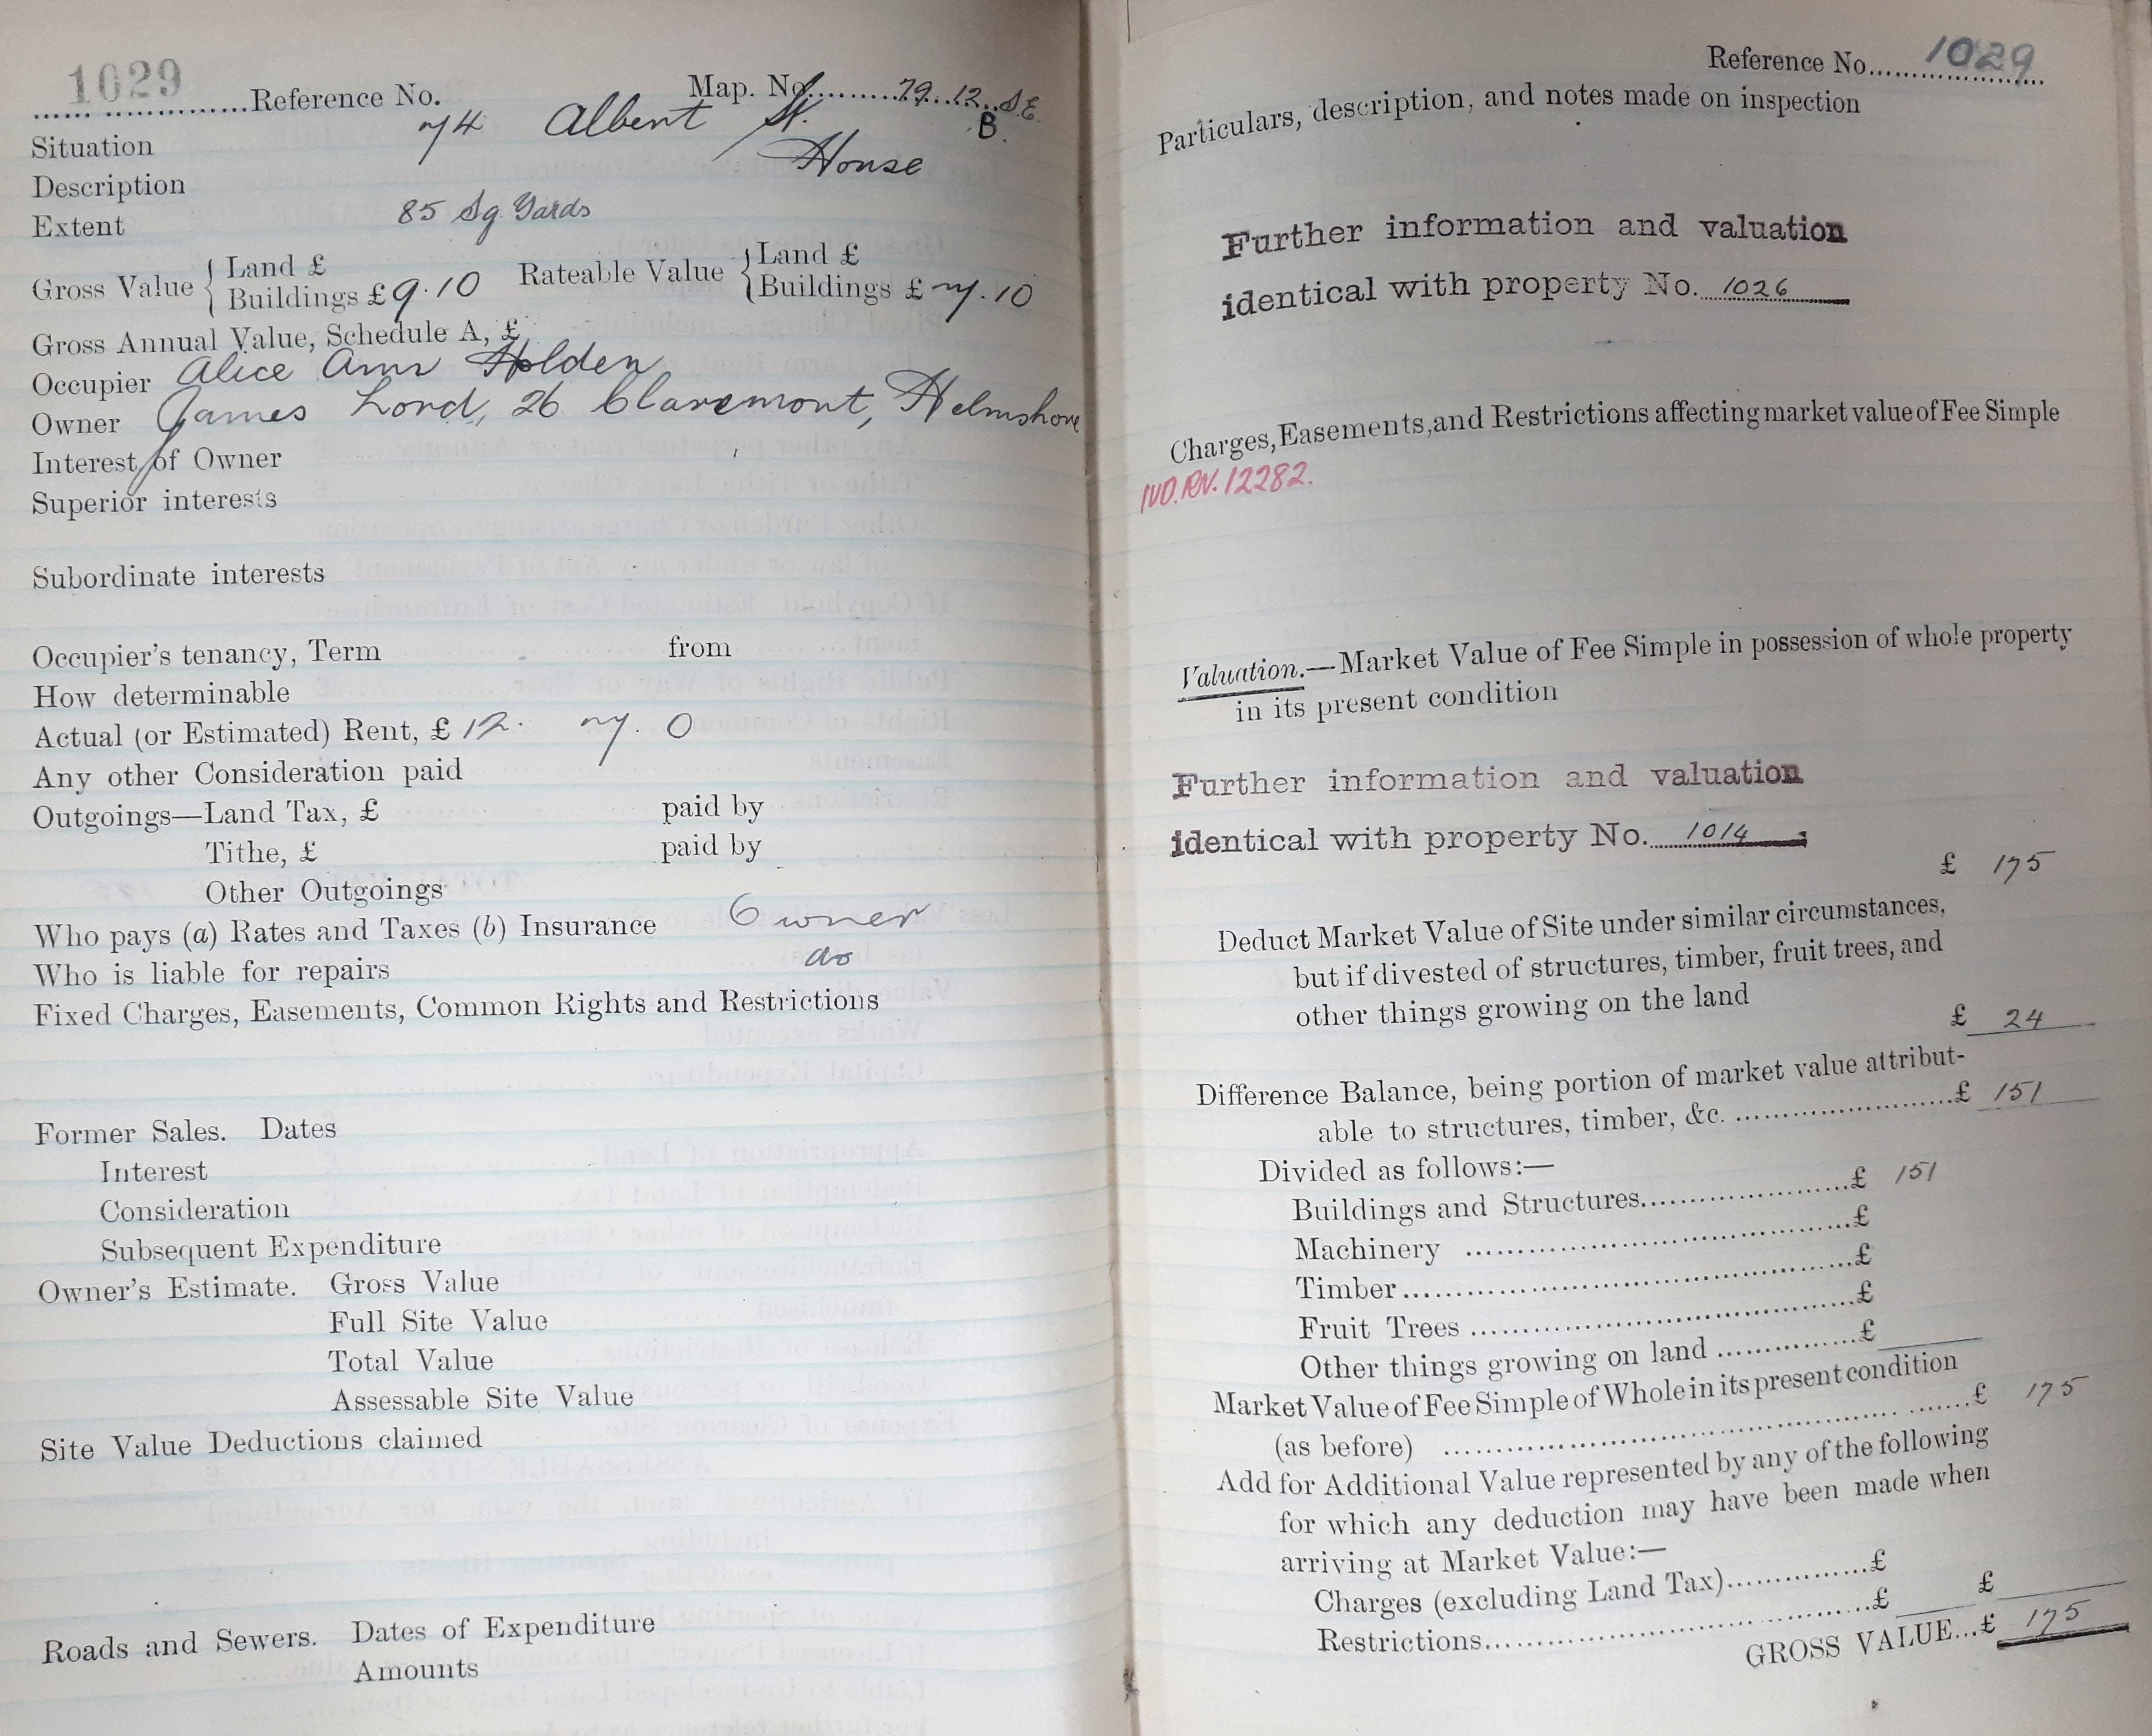 1029
Reference No. Map. No. 79.12. S.E.
B.
Situation 74 Albert St.
Description House
Extent 85 Sq. Yards
Gross Value { Land £
Buildings £ 9.10
Rateable Value { Land £
Buildings £ 7.10
Gross Annual Value, Schedule A, £
Occupier Alice Ann Holden
Owner James Lord, 26 Claremont, Helmshore
Interest of Owner
Superior interests
Subordinate interests
Occupier's tenancy, Term from
How determinable
Actual (or Estimated) Rent, £ 12. 7. 0
Any other Consideration paid
Outgoings—Land Tax, £ paid by
Tithe, £ paid by
Other Outgoings
Who pays (a) Rates and Taxes (b) Insurance Owner
Who is liable for repairs do
Fixed Charges, Easements, Common Rights and Restrictions
Former Sales. Dates
Interest
Consideration
Subsequent Expenditure
Owner's Estimate. Gross Value
Full Site Value
Total Value
Assessable Site Value
Site Value Deductions claimed
Roads and Sewers. Dates of Expenditure
Amounts
Reference No. 1029
Particulars, description, and notes made on inspection
Further information and valuation
identical with property No. 1026
Charges, Easements, and Restrictions affecting market value of Fee Simple
IVD. RV. 12282.
Valuation.—Market Value of Fee Simple in possession of whole property
in its present condition
Further information and valuation
identical with property No. 1014
£ 175
Deduct Market Value of Site under similar circumstances,
but if divested of structures, timber, fruit trees, and
other things growing on the land
£ 24
Difference Balance, being portion of market value attribut-
able to structures, timber, &c. £ 151
Divided as follows:—
Buildings and Structures £ 151
Machinery £
Timber £
Fruit Trees £
Other things growing on land £
Market Value of Fee Simple of Whole in its present condition
(as before) £ 175
Add for Additional Value represented by any of the following
for which any deduction may have been made when
arriving at Market Value:—
Charges (excluding Land Tax) £
Restrictions £ £
GROSS VALUE...£ 175